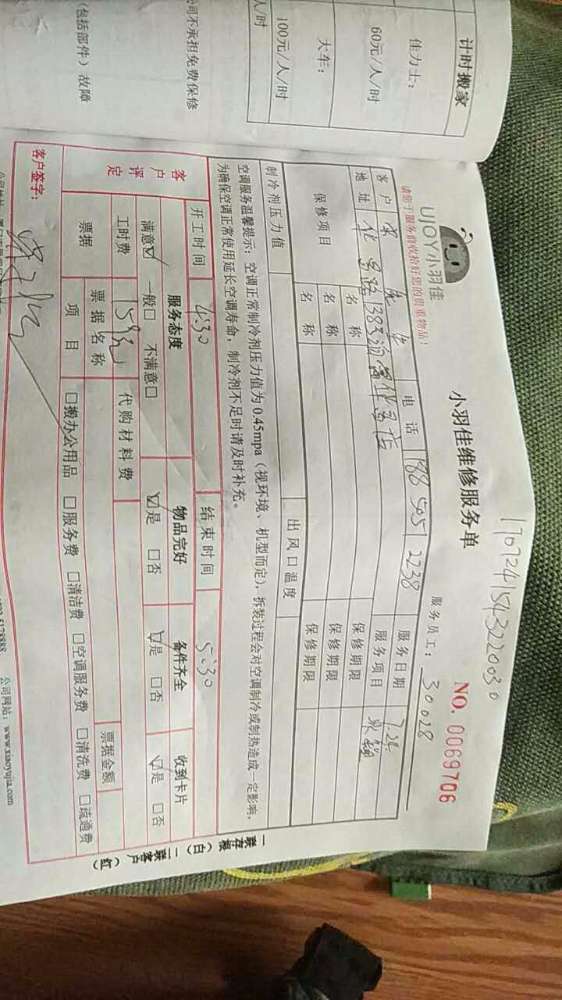 计时搬家
佳力士：
60元/人/时
大车：
100元/人/时
人/时
公司不承担免费保修
（包括部件）故障
1707241543220030
UJOY小羽佳
小羽佳维修服务单
NO. 0069706
请您于服务前收拾好您的贵重物品！
服务员工： 30028
客户 电话 服务日期 7.24
地址 服务项目
保修项目 名称 保修期限
名称 保修期限
名称 保修期限
制冷剂压力值 出风口温度
空调服务温馨提示：空调正常制冷剂压力值为0.45mpa（视环境、机型而定），拆装过程会对空调制冷或制热造成一定影响，
为确保空调正常使用延长空调寿命，制冷剂不足时请及时补充。
开工时间 4:30 结束时间 5:30
客户评定 服务态度 物品完好 备件齐全 收到卡片
满意☑ 一般□ 不满意□ ☑是 □否 ☑是 □否 ☑是 □否
工时费 代购材料费
票据 票据名称 票据金额
项目 □搬办公用品 □服务费 □清洁费 □空调服务费 □清洗费 □疏通费
客户签字：
公司网站：www.xiaoyujia.com
一联存根（白） 二联客户（红）